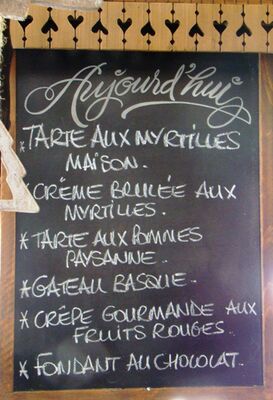 Aujourd'hui
* TARTE AUX MYRTILLES
MAISON.
* CRÈME BRULÉE AUX
MYRTILLES.
* TARTE AUX POMMES
PAYSANNE.
* GATEAU BASQUE.
* CRÊPE GOURMANDE AUX
FRUITS ROUGES.
* FONDANT AU CHOCOLAT.